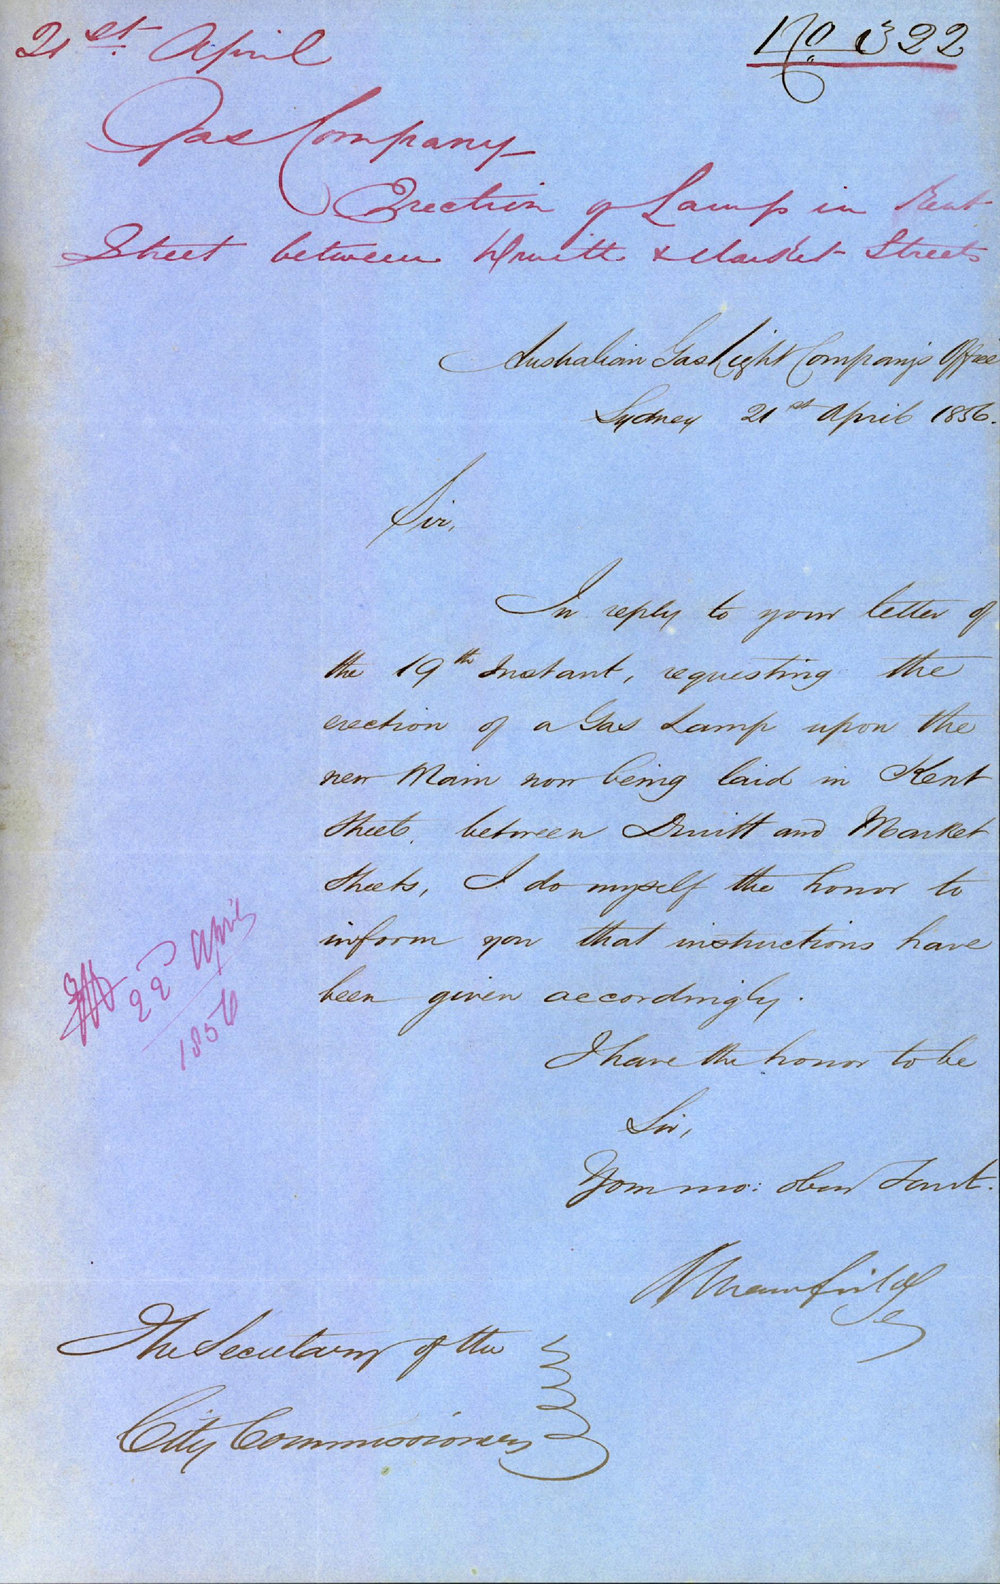 21st April
No 322
Gas Company
Erection of Lamp in Kent
Street between Druitt & Market Streets
Australian Gas Light Company's Office
Sydney 21st April 1856.
Sir,
In reply to your letter of
the 19th Instant, requesting the
erection of a Gas Lamp upon the
new Main now being laid in Kent
Street, between Druitt and Market
Streets, I do myself the honor to
inform you that instructions have
been given accordingly.
22d April
1856
I have the honor to be
Sir,
Your mo: obed Servt.
The Secretary of the
City Commissioners